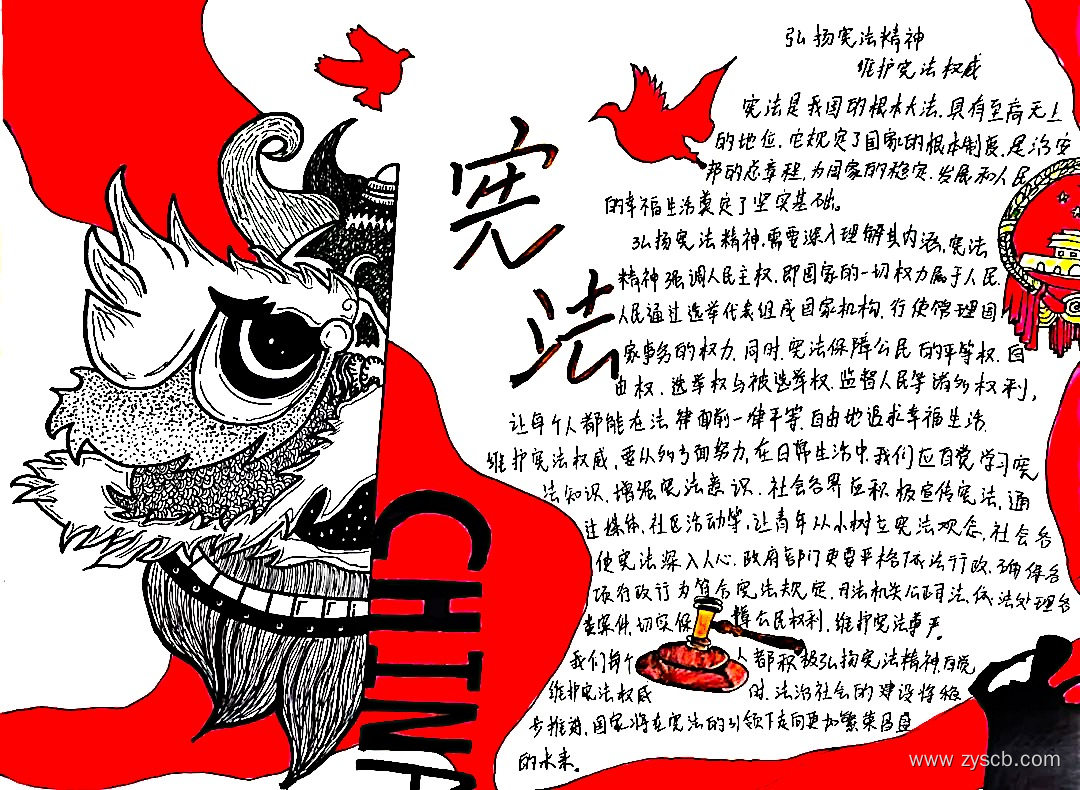 弘扬宪法精神
维护宪法权威
宪法
宪法是我国的根本大法，具有至高无上
的地位，它规定了国家的根本制度，是治安
邦的总章程，为国家的稳定、发展和人民
的幸福生活奠定了坚实基础。
弘扬宪法精神，需要深入理解其内涵，宪法
精神强调人民主权，即国家的一切权力属于人民，
人民通过选举代表组成国家机构，行使管理国
家事务的权力，同时，宪法保障公民的平等权、自
由权、选举权与被选举权、监督人民等诸多权利，
让每个人都能在法律面前一律平等，自由地追求幸福生活
维护宪法权威，要从多方面努力，在日常生活中，我们应自觉学习宪
法知识，增强宪法意识，社会各界应积极宣传宪法，通
过媒体、社区活动等，让青年从小树立宪法观念，社会各
使宪法深入人心，政府部门更要严格依法行政，确保各
项行政行为符合宪法规定，司法机关公正司法，依法处理各
类案件，切实保障公民权利，维护宪法尊严。
我们每个人都积极弘扬宪法精神，自觉
维护宪法权威 时，法治社会的建设将稳
步推进，国家将在宪法的引领下走向更加繁荣昌盛
的未来。
CHINA
www.zyscb.com